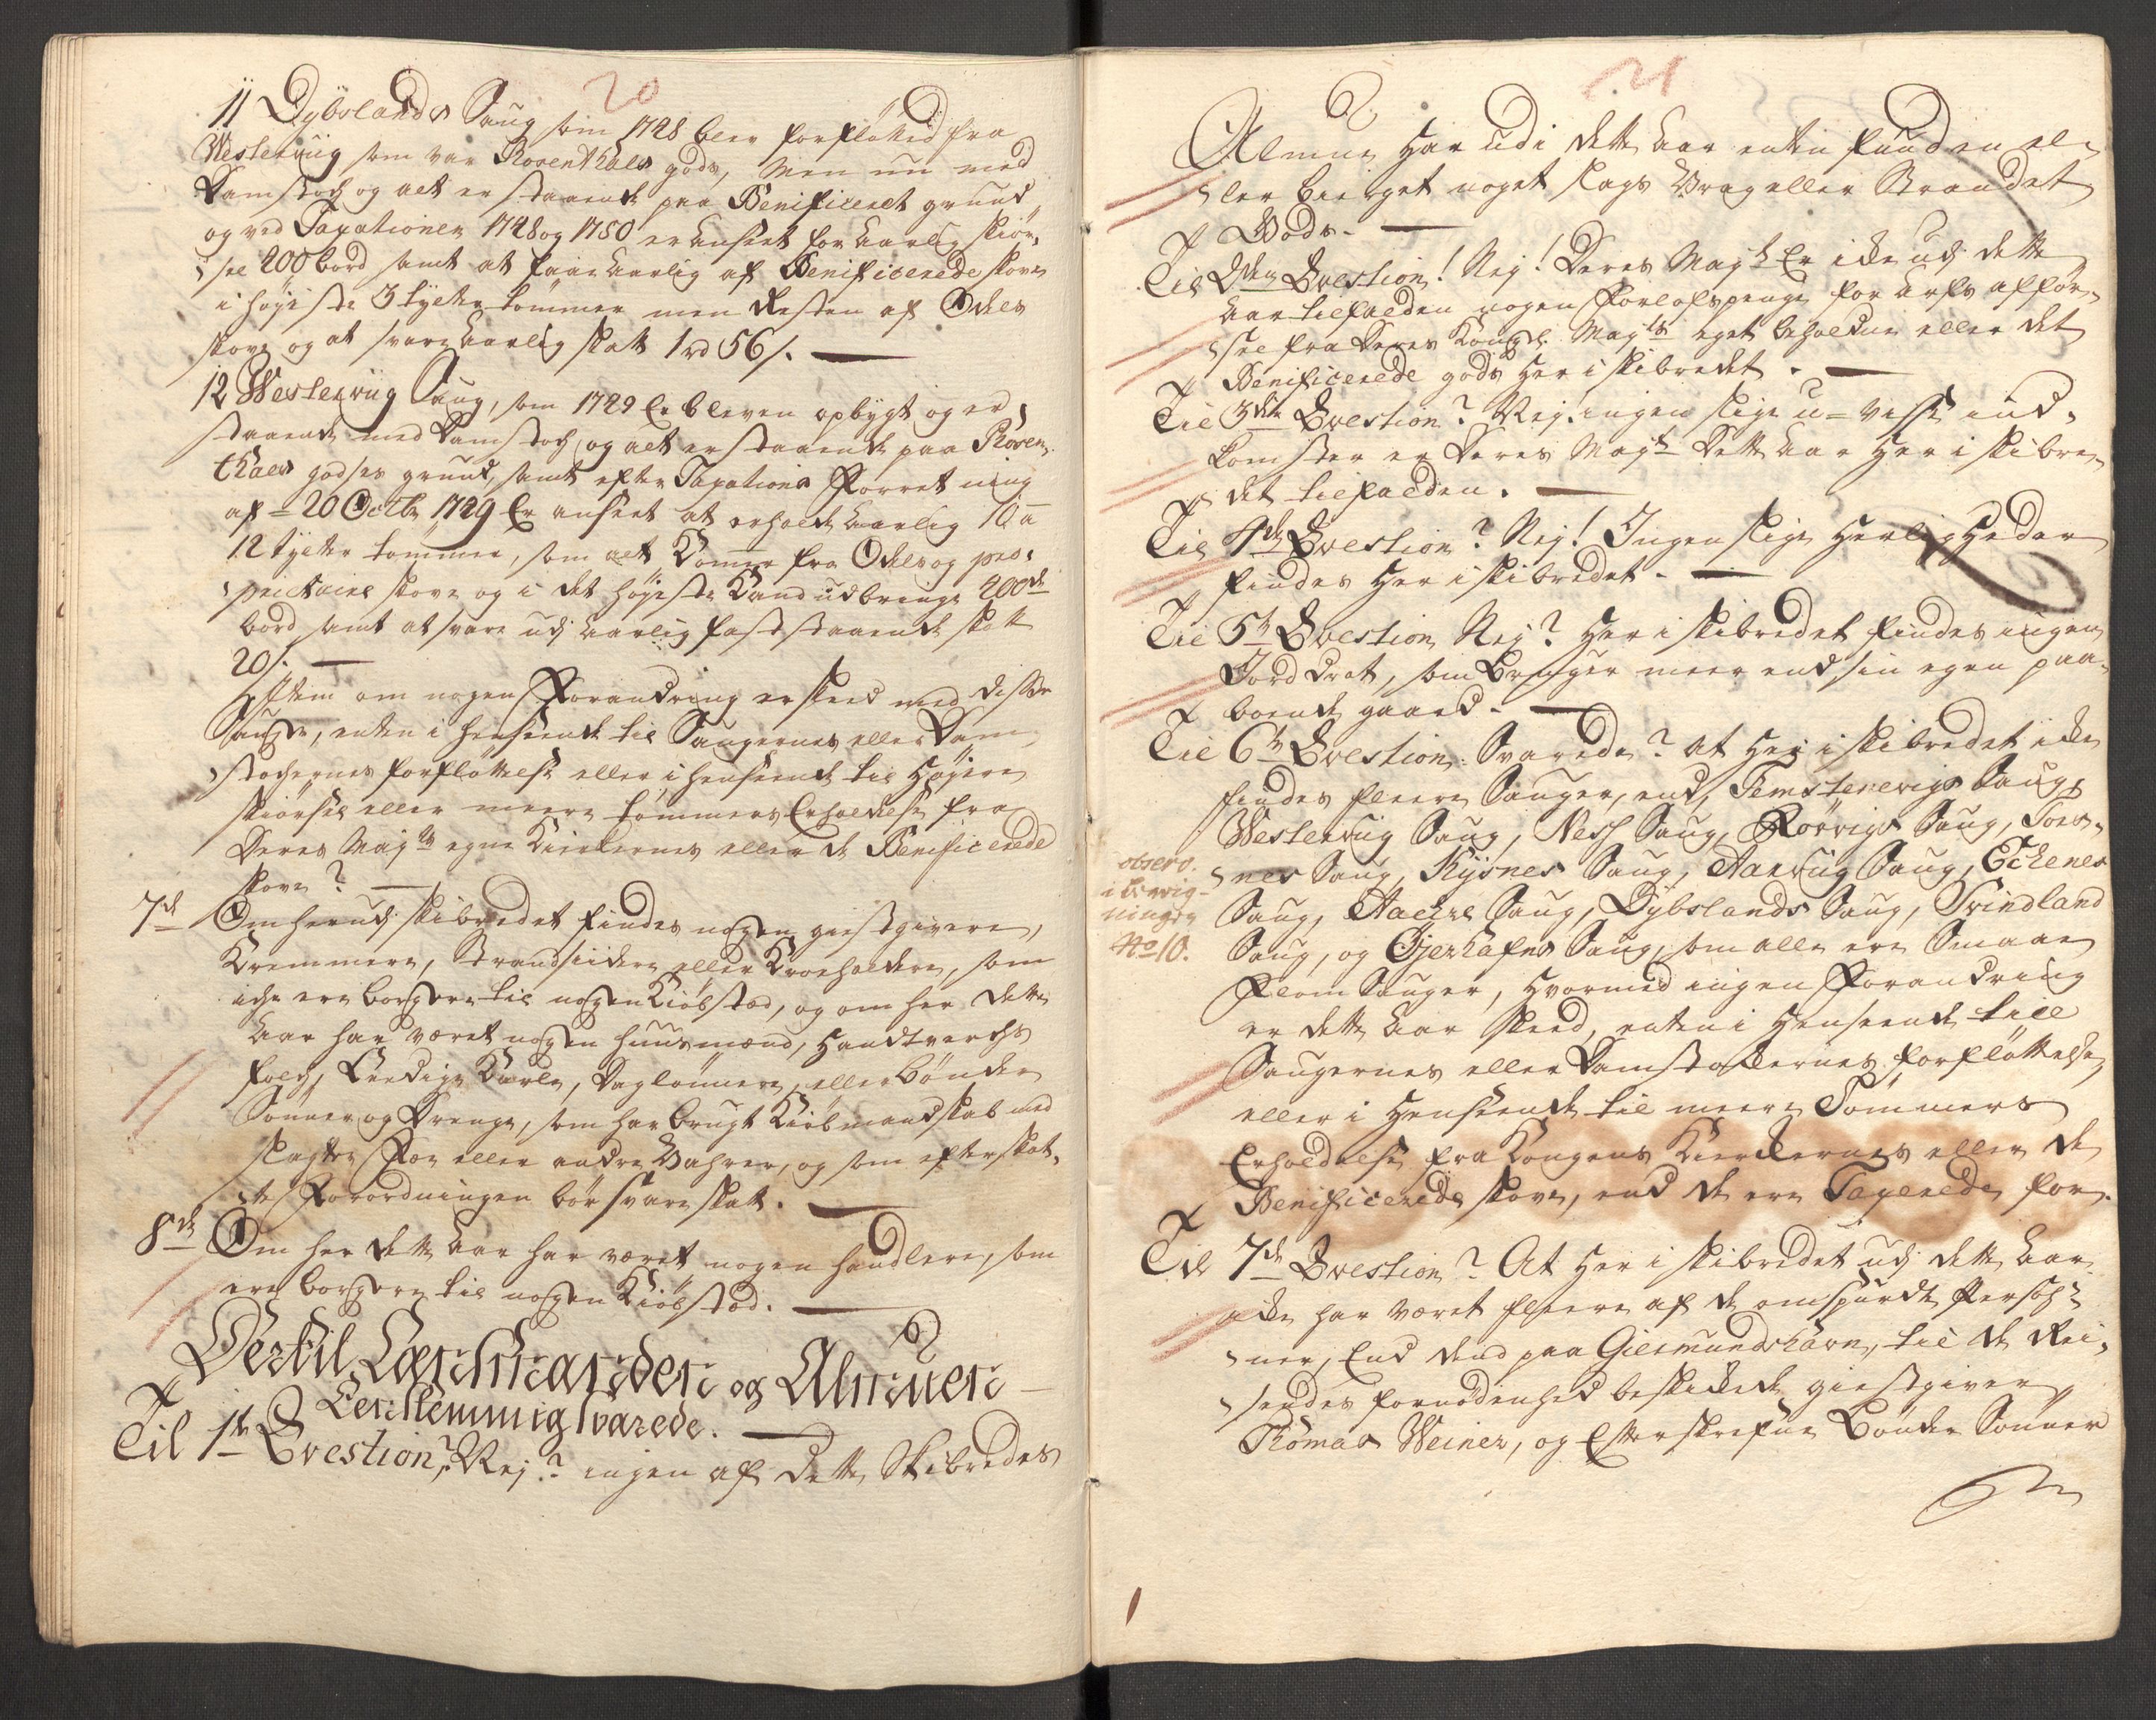 20
11 Dybslands Saug som 1748 blev forfløttet fra
Westervüg som var Rosenthals gods, Men nu med
Damstoch og alt er staaende paa Benificeret grund,
og ved Taxationen 1748 og 1750 er anseet for aarlig skiør,
sel 200 bord samt at faar aarlig af Benificerede skove
i høyeste 3 tylter tømmer men Resten af Odels
skove og at svare aarlig skatt 1 rd 56 s.
12 Westervüg Saug, som 1749 Er bleven opbygt og er
staaende med Damstoch og alt er staaende paa Rosen-
thals godses grund, samt efter Taxations Forretning
af 20 Octbr 1749 Er anseet at erholde aarlig 10 a
12 tylter tømmer, som alt kommer fra Odels og pro-
prietaire skove og i det høyeste kand udbringe 200de
bord samt at svare udj aarlig faststaaende skatt
20 s.
Item om nogen Forandring er skeed med disse
Sauge, enten i henseende til Saugernes eller Dam
stochernes forfløttelse eller i henseende til høyere
skiørsel eller meere tømmers Erholdelse fra
Deres Mayts egne Kirkernes eller de Benificerede
skove?
7de Om herudj skibredet findes nogen giestgivere,
Kremmere, Strandsiidere eller Kroeholdere, som
iche ere borgere til nogen Kiøbstad, og om her dette
Aar har været nogen huusmænd, Handtverchs
folch, Leedige Karle, Daglønnere, eller bønder
Sønner og Drenge, som har brugt Kiøbmandskab med
slagter Fæe eller andre Vahrer, og som efter skat-
te Forordningen bør svare skatt.
8de Om her dette Aar har været nogen handlere, som
ere borgere til nogen Kiøbstad.
Dertil Lænsmanden og Almuen
Eenstemmig svarede.
Til 1te Qvestion, Nej? ingen af dette Skibredes
21
Almue har udi dette Aar enten funden el-
ler bierget noget slags Vrag eller Strandet
Gods.
Til 2den Qvestion! Nej! Deres Mayt Er icke udj dette
Aar tilfalden nogen Forlofspenge for arfs affør-
sel fra Deres Kongl. Mayts eget beholdne eller det
Benificerede gods her i skibredet.
Til 3die Qvestion? Nej. ingen slige u=visse ind-
komster er Deres Mayt Dette Aar her i skibre-
det tilfalden.
Til 4de Qvestion? Nej! Ingen slige herligheder
findes her i skibredet.
Til 5te Qvestion, Nej? her i skibredet findes ingen
Jorddrot, som bruger meer end sin egen paa-
boende gaard.
Til 6te Qvestion: Svarede? at her i skibredet icke
findes fleere Sauger, end, Femstenevigs Saug,
Westervüg Saug, Ness Saug, Rørvigs Saug, Toes-
nes Saug, Kysnes Saug, Aarvüg Saug, Echenes
Saug, Aachre Saug, Dybslands Saug, Svindland
Saug, og Gjerhafns Saug, som alle ere Smaae
Flom Sauger, hvormed ingen Forandring
er dette Aar skeed, enten i henseende till
Saugernes eller Damstockernes forfløttelse,
eller i henseende til meere Tømmers
Erholdelse fra Kongens Kierkernes eller de
Benificerede skove, end de ere Taxerede for.
observ.
i besvig-
ningen
No 10.
Til 7de Qvestion? At her i skibredet udj dette Aar
icke har været fleere af de omspurdte Persoh-
ner, End dend paa Giermundshavn, til de Rei-
sendes fornødenhed beskickede giestgiver
Thomas Weiner, og Efterskrefne Bønder Sønner